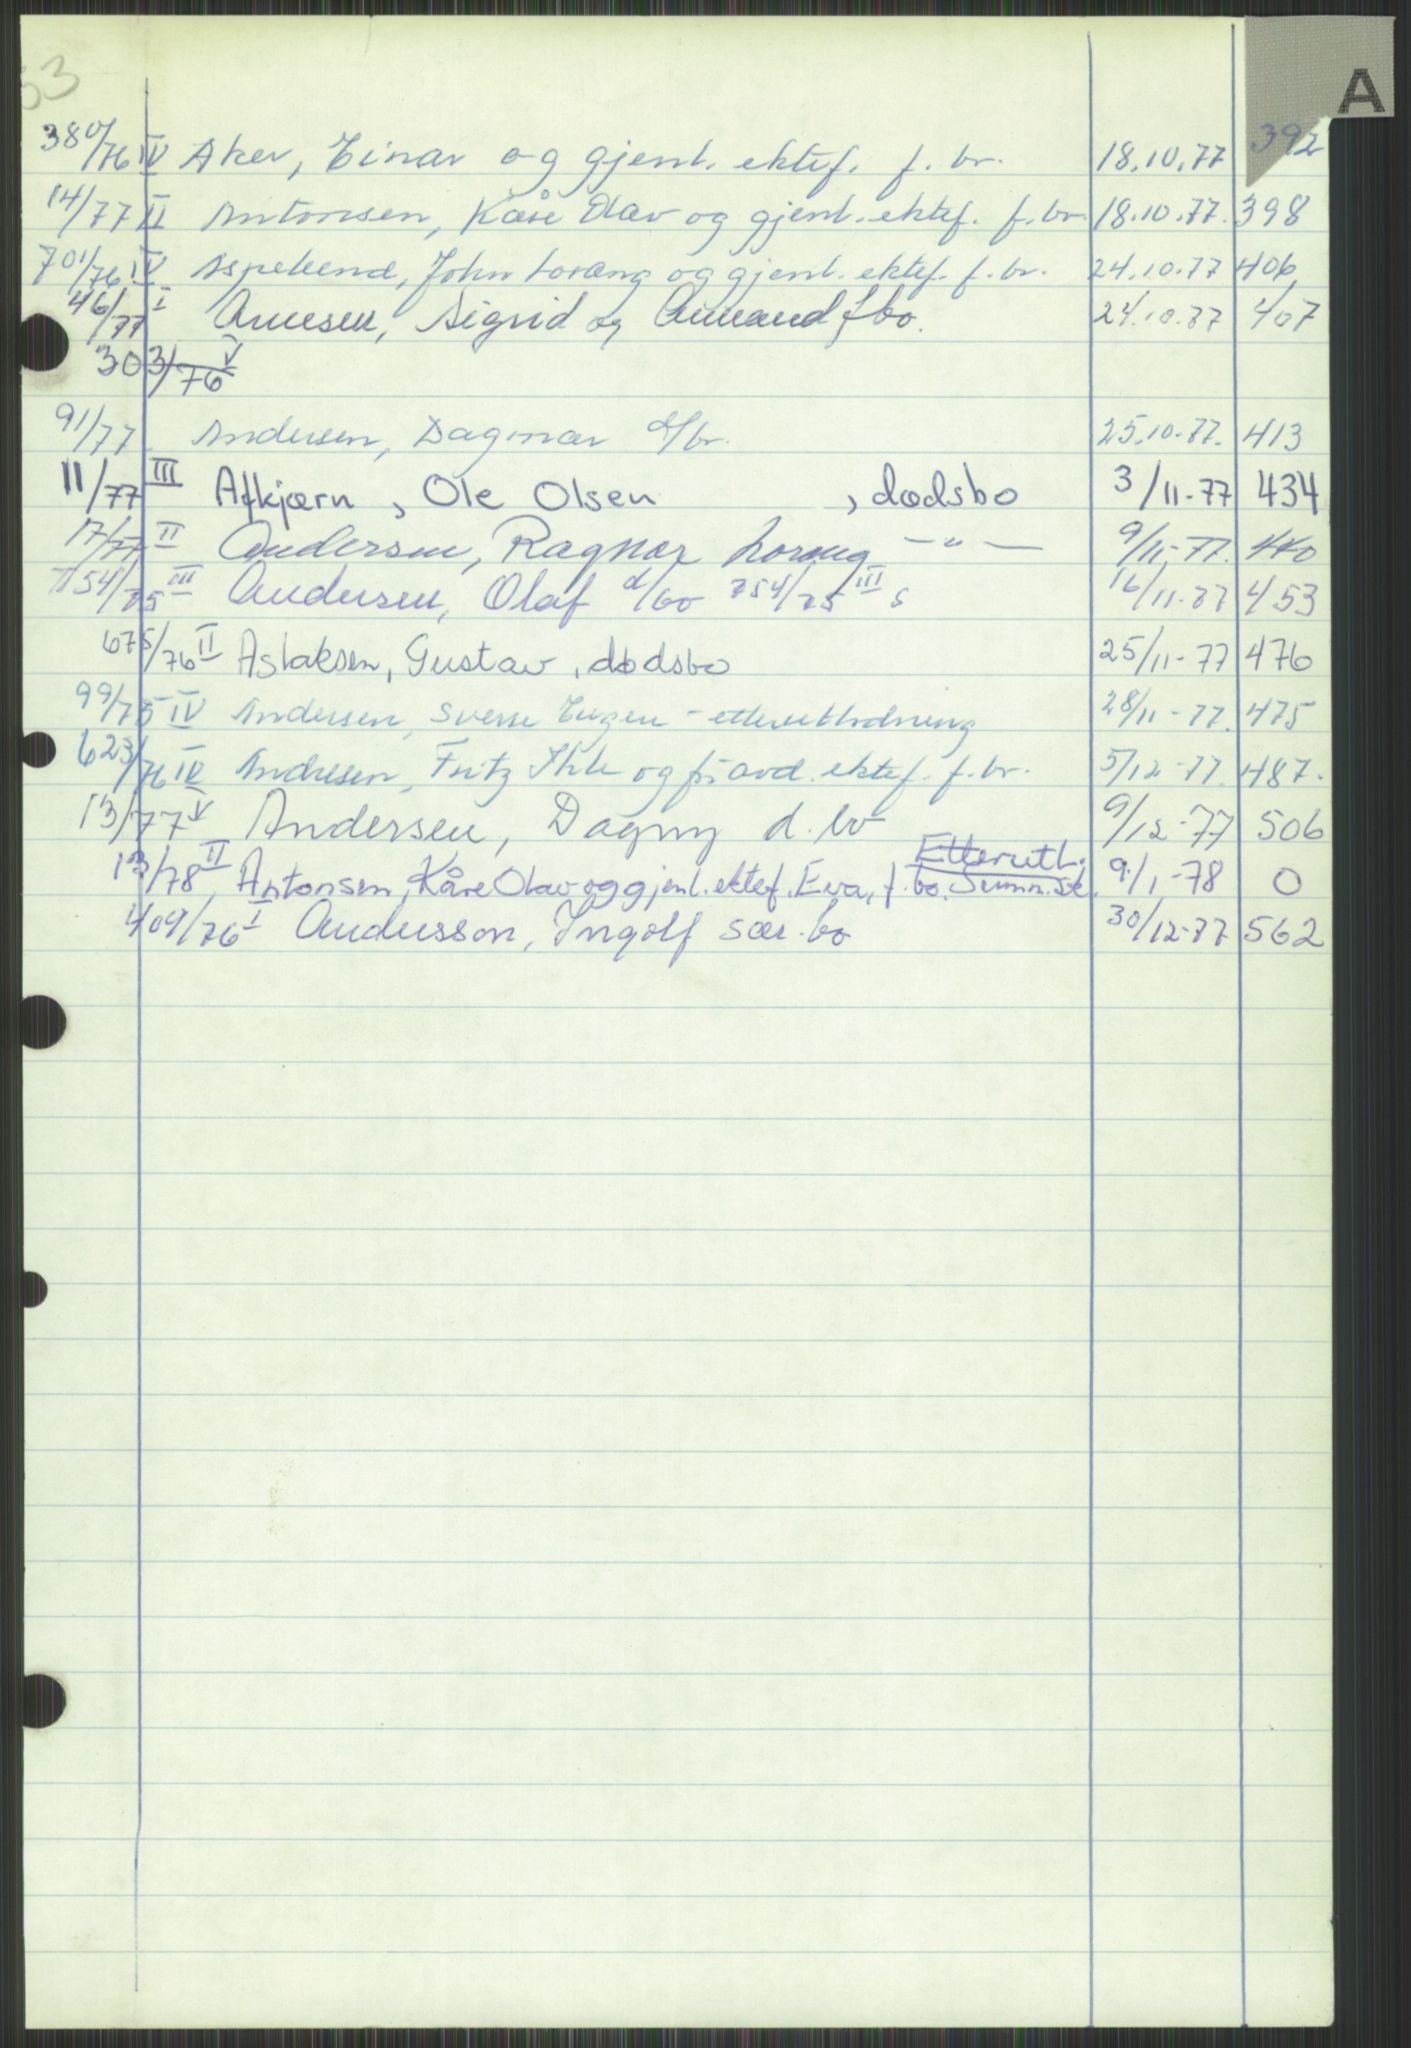 A
53
380/76 IV Aker, Einar og gjenl. ektef. f. bo. 18.10.77 392
14/77 II Antonsen, Kåre Olav og gjenl. ektef. f. bo. 18.10.77. 398
701/76 IV Aspelund, John Lorang og gjenl. ektef. f. bo. 24.10.77 406
46/77 I Arnesen, Sigrid og Armand f bo. 24.10.77 407
303/76 V
91/77 Andersen, Dagmar d/bo. 25.10.77. 413
11/77 III Afkjærn, Ole Olsen, dødsbo 3/11-77 434
17/77 II Andersen, Ragnar Lorang — " — 9/11-77. 440
754/75 III Andersen, Olaf d/bo 754/75 III S 16/11-77 453
675/76 II Aslaksen, Gustav, dødsbo 25/11-77 476
99/75 IV Andersen, Sverre Eugen - etterutlodning 28/11-77. 475
623/76 IV Andresen, Fritz og ektef. f. bo. 5/12-77. 487.
13/77 V Andersen, Dagny d. bo 9/12-77 506
Etterutl.
13/78 II Antonsen, Kåre Olav og gjenl. ektef. Eva, f. bo. Summ. sk. 9/1-78 0
409/76 I Andersson, Ingolf sær. bo 30/12-77 562